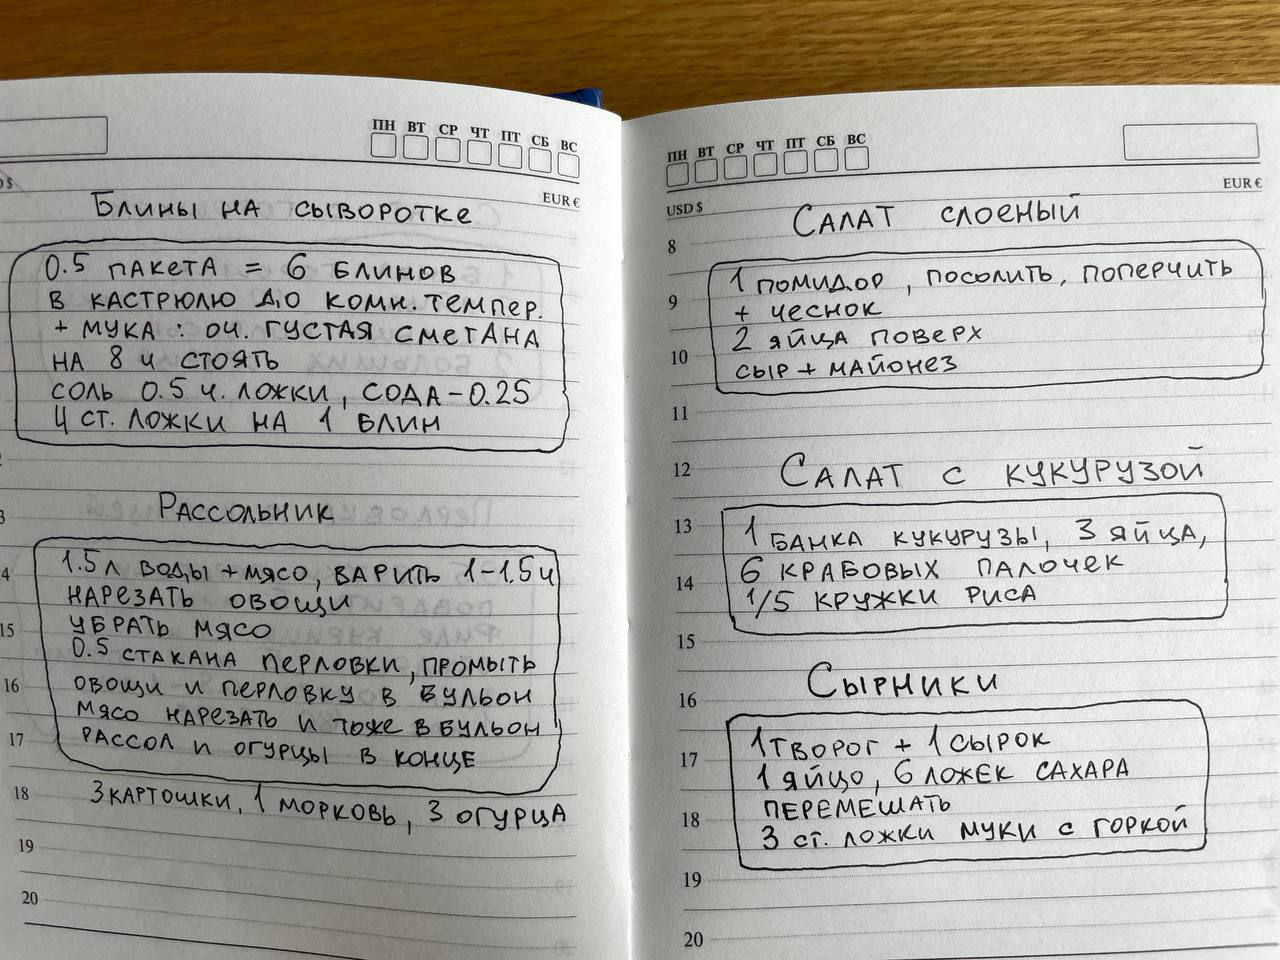 ПН ВТ СР ЧТ ПТ СБ ВС
EUR €
Блины на сыворотке
0.5 пакета = 6 блинов
в кастрюлю до комн. темпер.
+ мука : оч. густая сметана
на 8 ч стоять
соль 0.5 ч. ложки, сода - 0.25
4 ст. ложки на 1 блин
Рассольник
1.5 л воды + мясо, варить 1-1.5 ч
нарезать овощи
убрать мясо
0.5 стакана перловки, промыть
овощи и перловку в бульон
мясо нарезать и тоже в бульон
рассол и огурцы в конце
3 картошки, 1 морковь, 3 огурца
14
15
16
17
18
19
20
ПН ВТ СР ЧТ ПТ СБ ВС
USD $ EUR €
Салат слоеный
1 помидор, посолить, поперчить
+ чеснок
2 яйца поверх
сыр + майонез
Салат с кукурузой
1 банка кукурузы, 3 яйца,
6 крабовых палочек
1/5 кружки риса
Сырники
1 творог + 1 сырок
1 яйцо, 6 ложек сахара
перемешать
3 ст. ложки муки с горкой
8
9
10
11
12
13
14
15
16
17
18
19
20